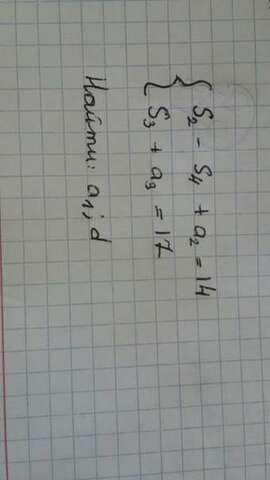 S₂ - S₄ + a₂ = 14
S₃ + a₃ = 17
Найти: a₁; d